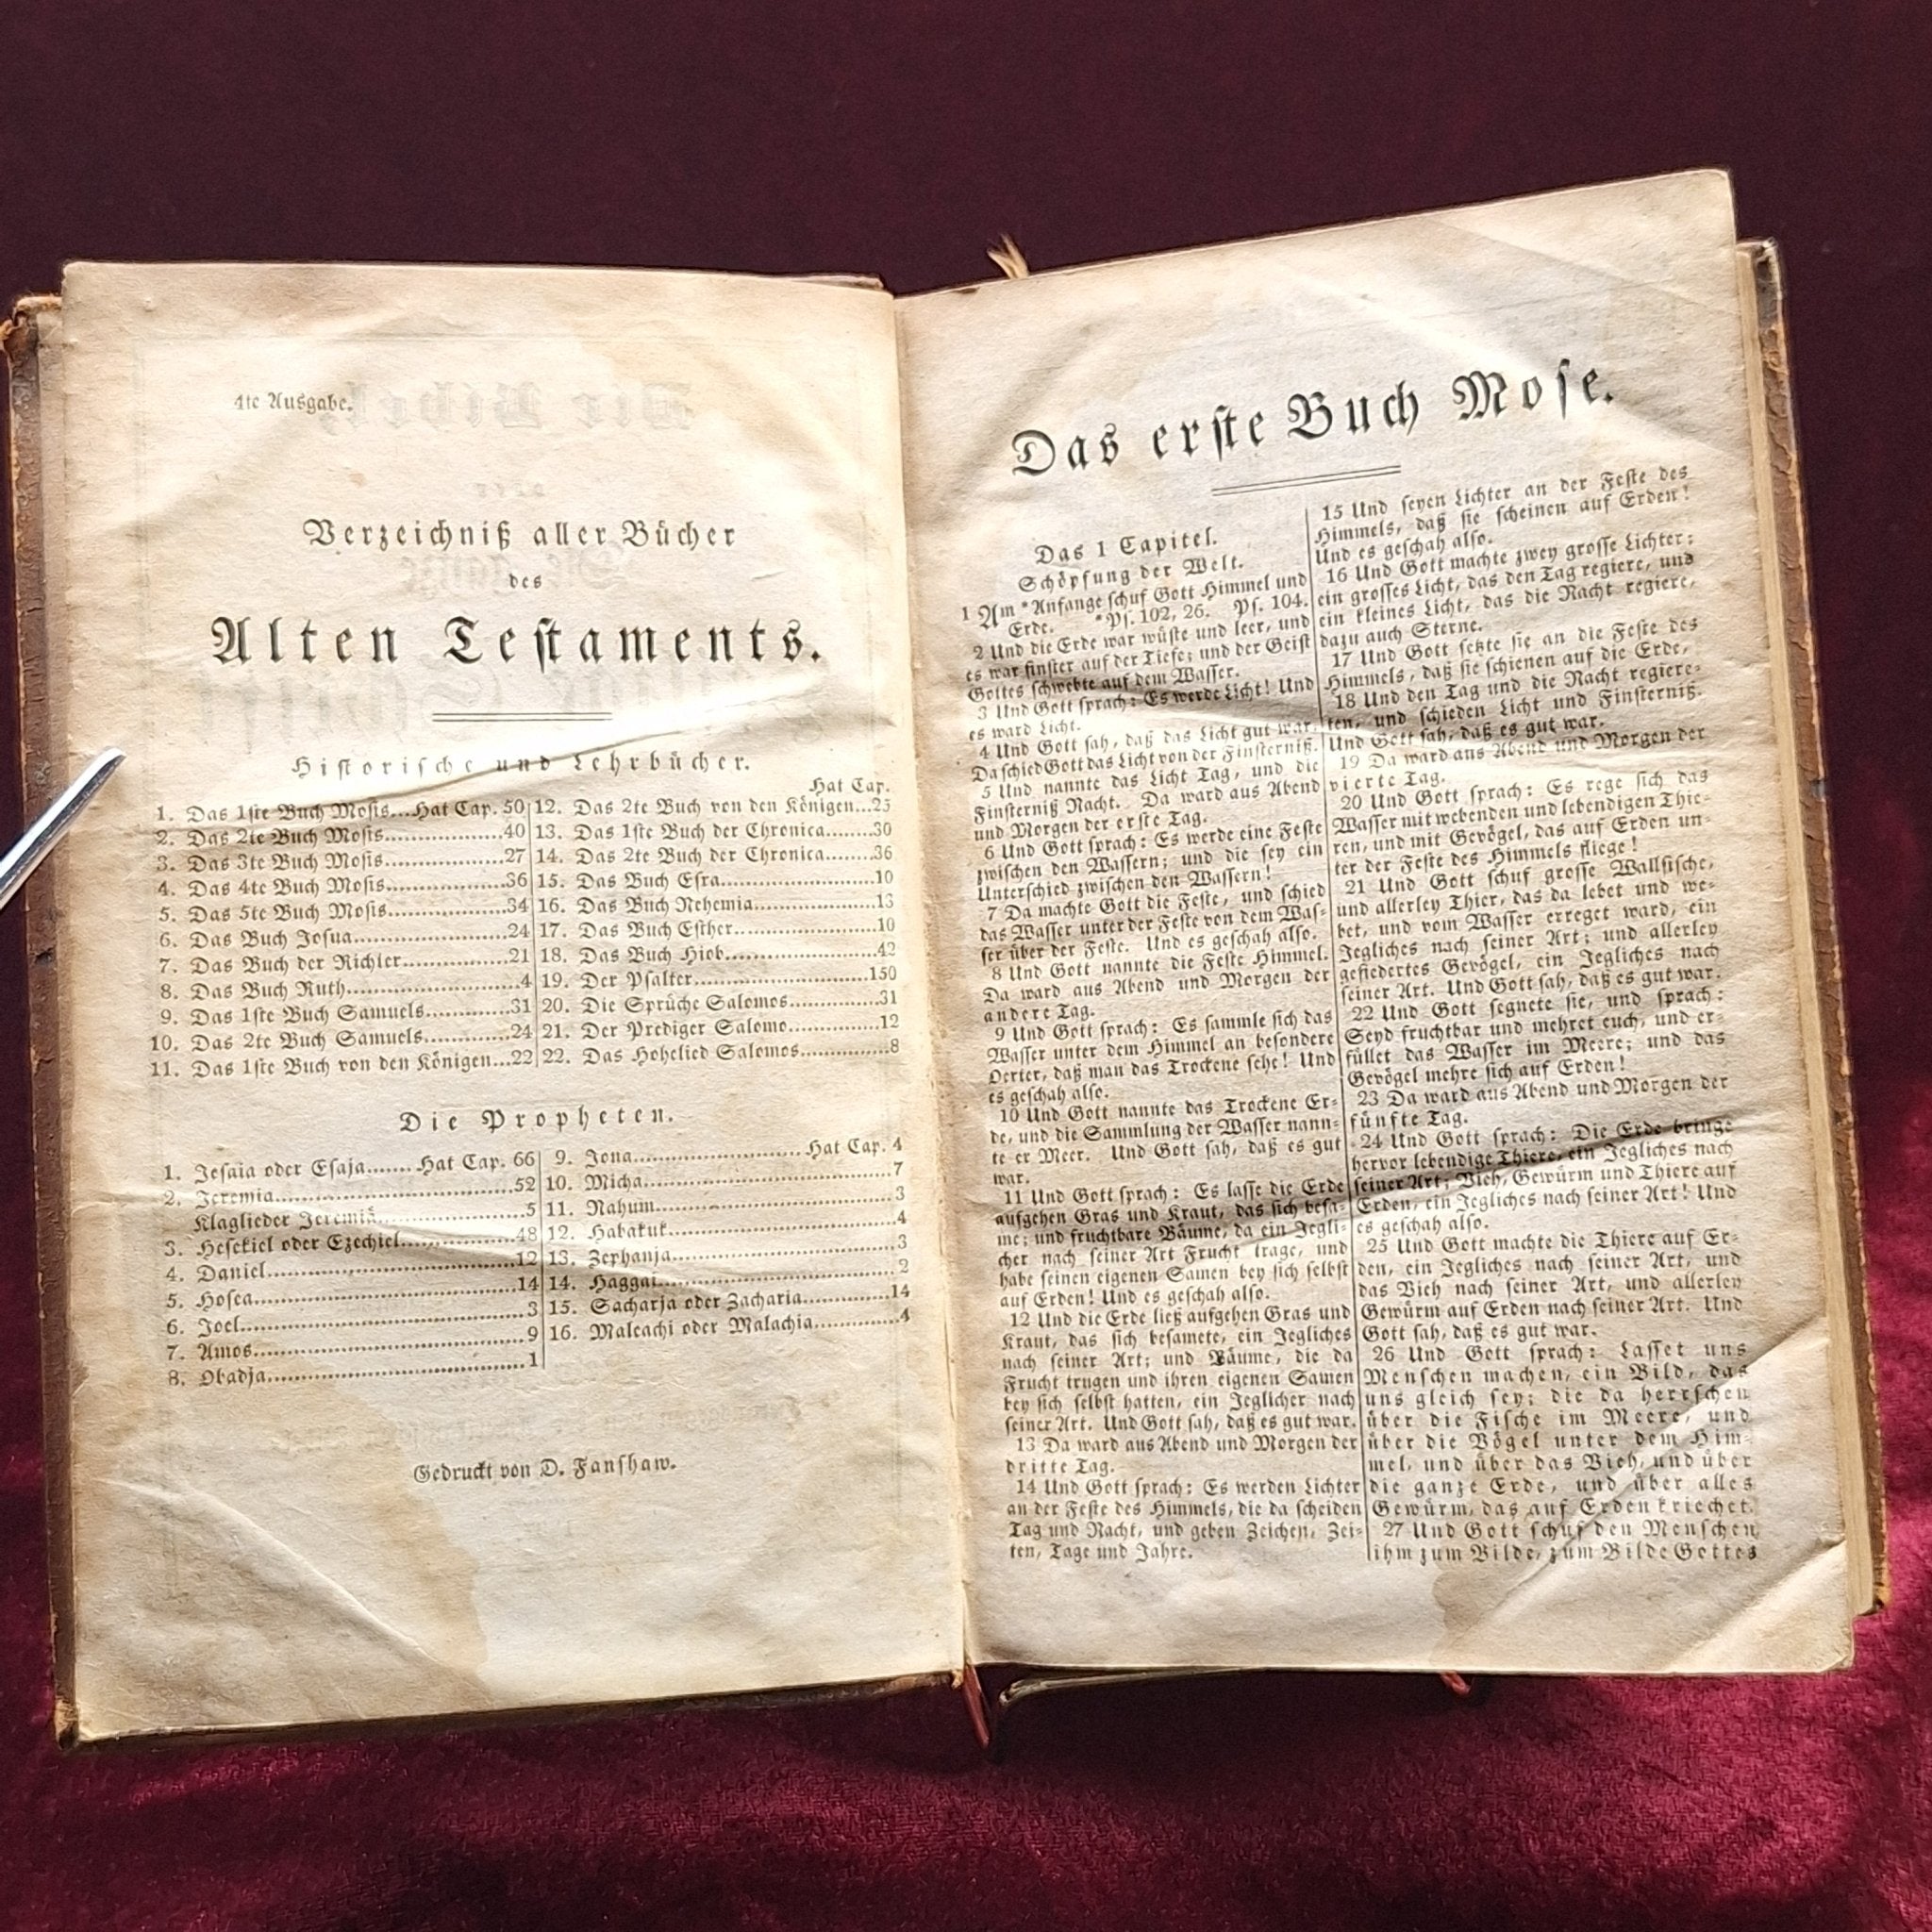 4te Ausgabe.
Verzeichniß aller Bücher
des
Alten Testaments.
Historische und Lehrbücher.
Hat Cap.
1. Das 1ste Buch Mosis...Hat Cap. 50
2. Das 2te Buch Mosis...40
3. Das 3te Buch Mosis...27
4. Das 4te Buch Mosis...36
5. Das 5te Buch Mosis...34
6. Das Buch Josua...24
7. Das Buch der Richter...21
8. Das Buch Ruth...4
9. Das 1ste Buch Samuels...31
10. Das 2te Buch Samuels...24
11. Das 1ste Buch von den Königen...22
12. Das 2te Buch von den Königen...25
13. Das 1ste Buch der Chronica...30
14. Das 2te Buch der Chronica...36
15. Das Buch Esra...10
16. Das Buch Nehemia...13
17. Das Buch Esther...10
18. Das Buch Hiob...42
19. Der Psalter...150
20. Die Sprüche Salomos...31
21. Der Prediger Salomo...12
22. Das Hohelied Salomos...8
Die Propheten.
1. Jesaia oder Esaja...Hat Cap. 66
2. Jeremia...52
Klaglieder Jeremiä...5
3. Hesekiel oder Ezechiel...48
4. Daniel...12
5. Hosea...14
6. Joel...3
7. Amos...9
8. Obadja...1
9. Jona...Hat Cap. 4
10. Micha...7
11. Nahum...3
12. Habakuk...4
13. Zephanja...3
14. Haggai...2
15. Sacharja oder Zacharia...14
16. Maleachi oder Malachia...4
Gedruckt von D. Fanshaw.
Das erste Buch Mose.
Das 1 Capitel.
Schöpfung der Welt.
1 Am *Anfange schuf Gott Himmel und
Erde. *Ps. 102, 26. Ps. 104.
2 Und die Erde war wüste und leer, und
es war finster auf der Tiefe; und der Geist
Gottes schwebte auf dem Wasser.
3 Und Gott sprach: Es werde Licht! Und
es ward Licht.
4 Und Gott sah, daß das Licht gut war.
Da schied Gott das Licht von der Finsterniß.
5 Und nannte das Licht Tag, und die
Finsterniß Nacht. Da ward aus Abend
und Morgen der erste Tag.
6 Und Gott sprach: Es werde eine Feste
zwischen den Wassern; und die sey ein
Unterschied zwischen den Wassern!
7 Da machte Gott die Feste, und schied
das Wasser unter der Feste von dem Was-
ser über der Feste. Und es geschah also.
8 Und Gott nannte die Feste Himmel.
Da ward aus Abend und Morgen der
andere Tag.
9 Und Gott sprach: Es sammle sich das
Wasser unter dem Himmel an besondere
Oerter, daß man das Trockene sehe! Und
es geschah also.
10 Und Gott nannte das Trockene Er-
de, und die Sammlung der Wasser nann-
te er Meer. Und Gott sah, daß es gut
war.
11 Und Gott sprach: Es lasse die Erde
aufgehen Gras und Kraut, das sich besa-
me; und fruchtbare Bäume, da ein Jegli-
cher nach seiner Art Frucht trage, und
habe seinen eigenen Samen bey sich selbst
auf Erden! Und es geschah also.
12 Und die Erde ließ aufgehen Gras und
Kraut, das sich besamete, ein Jegliches
nach seiner Art; und Bäume, die da
Frucht trugen und ihren eigenen Samen
bey sich selbst hatten, ein Jeglicher nach
seiner Art. Und Gott sah, daß es gut war.
13 Da ward aus Abend und Morgen der
dritte Tag.
14 Und Gott sprach: Es werden Lichter
an der Feste des Himmels, die da scheiden
Tag und Nacht, und geben Zeichen, Zei-
ten, Tage und Jahre.
15 Und seyen Lichter an der Feste des
Himmels, daß sie scheinen auf Erden!
Und es geschah also.
16 Und Gott machte zwey grosse Lichter:
ein grosses Licht, das den Tag regiere, und
ein kleines Licht, das die Nacht regiere,
dazu auch Sterne.
17 Und Gott setzte sie an die Feste des
Himmels, daß sie schienen auf die Erde,
18 Und den Tag und die Nacht regiere-
ten, und schieden Licht und Finsterniß.
Und Gott sah, daß es gut war.
19 Da ward aus Abend und Morgen der
vierte Tag.
20 Und Gott sprach: Es rege sich das
Wasser mit webenden und lebendigen Thie-
ren, und mit Gevögel, das auf Erden un-
ter der Feste des Himmels fliege!
21 Und Gott schuf grosse Wallfische,
und allerley Thier, das da lebet und we-
bet, und vom Wasser erreget ward, ein
Jegliches nach seiner Art; und allerley
gefiedertes Gevögel, ein Jegliches nach
seiner Art. Und Gott sah, daß es gut war.
22 Und Gott segnete sie, und sprach:
Seyd fruchtbar und mehret euch, und er-
füllet das Wasser im Meere; und das
Gevögel mehre sich auf Erden!
23 Da ward aus Abend und Morgen der
fünfte Tag.
24 Und Gott sprach: Die Erde bringe
hervor lebendige Thiere, ein Jegliches nach
seiner Art; Vieh, Gewürm und Thiere auf
Erden, ein Jegliches nach seiner Art! Und
es geschah also.
25 Und Gott machte die Thiere auf Er-
den, ein Jegliches nach seiner Art, und
das Vieh nach seiner Art, und allerley
Gewürm auf Erden nach seiner Art. Und
Gott sah, daß es gut war.
26 Und Gott sprach: Lasset uns
Menschen machen, ein Bild, das
uns gleich sey; die da herrschen
über die Fische im Meere, und
über die Vögel unter dem Him-
mel, und über das Vieh, und über
die ganze Erde, und über alles
Gewürm, das auf Erden kriechet.
27 Und Gott schuf den Menschen
ihm zum Bilde, zum Bilde Gottes